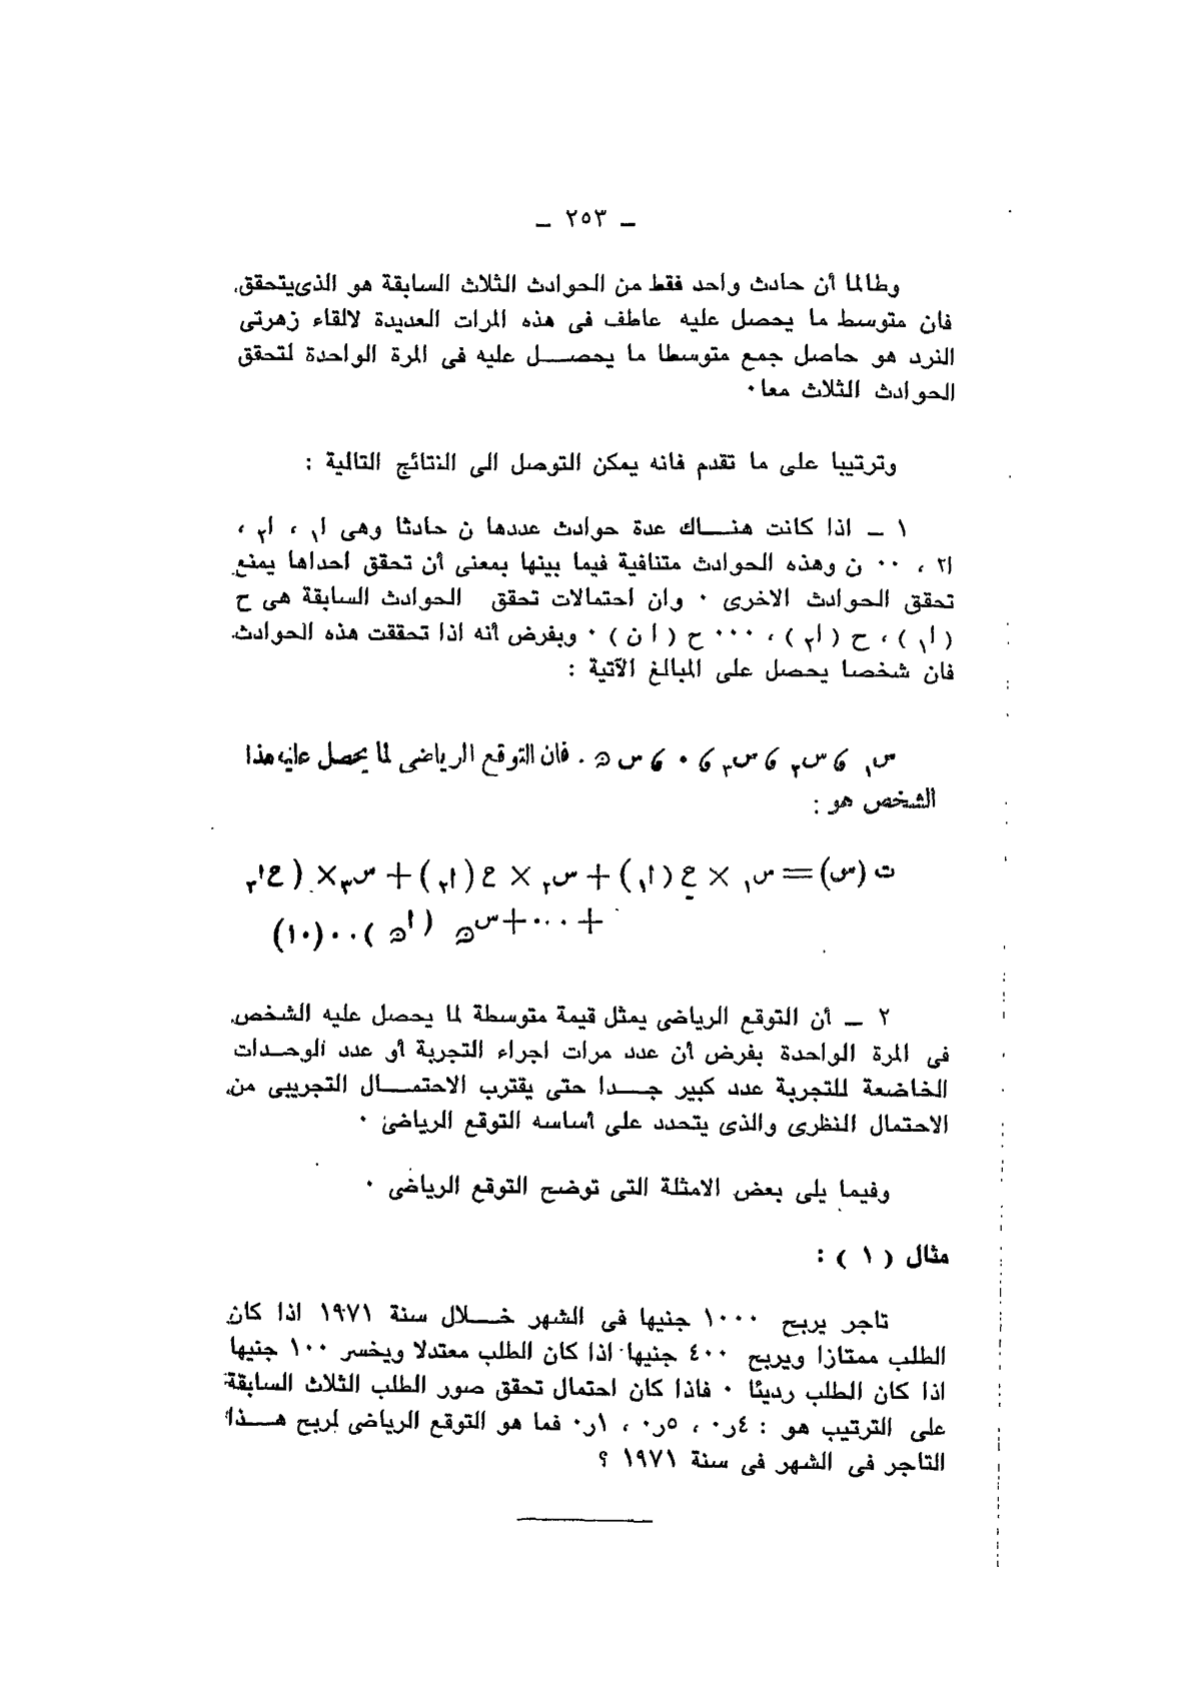 ـ ٢٥٣ ـ
وطالما أن حادث واحد فقط من الحوادث الثلاث السابقة هو الذى يتحقق
فان متوسط ما يحصل عليه عاطف فى هذه المرات العديدة لالقاء زهرتى
النرد هو حاصل جمع متوسطا ما يحصـــل عليه فى المرة الواحدة لتحقق
الحوادث الثلاث معا٠
وترتيبا على ما تقدم فانه يمكن التوصل الى النتائج التالية :
١ ـ اذا كانت هنـــاك عدة حوادث عددها ن حادثا وهى ا₁ ، ا₂ ،
ا٢ ، ٠٠ ن وهذه الحوادث متنافية فيما بينها بمعنى أن تحقق احداها يمنع
تحقق الحوادث الاخرى ٠ وان احتمالات تحقق الحوادث السابقة هى ح
( ا₁ ) ، ح ( ا₂ ) ، ٠٠٠ ح ( ا ن ) ٠ وبفرض أنه اذا تحققت هذه الحوادث
فان شخصا يحصل على المبالغ الآتية :
س₁ ، س₂ ، س₃ ، ٠ ، س ن . فان التوقع الرياضى لما يحصل عليه هذا
الشخص هو :
ت (س) = س₁ × ع (ا₁) + س₂ × ع (ا₂) + س₃ × (ع ا₃
+ ٠٠٠ + س ن ( ا ن ) ٠٠ (١٠)
٢ ـ أن التوقع الرياضى يمثل قيمة متوسطة لما يحصل عليه الشخص
فى المرة الواحدة بفرض أن عدد مرات اجراء التجربة أو عدد الوحـدات
الخاضعة للتجربة عدد كبير جـــدا حتى يقترب الاحتمـــال التجريبى من
الاحتمال النظرى والذى يتحدد على أساسه التوقع الرياضى ٠
وفيما يلى بعض الامثلة التى توضح التوقع الرياضى ٠
مثال ( ١ ) :
تاجر يربح ١٠٠٠ جنيها فى الشهر خـــلال سنة ١٩٧١ اذا كان
الطلب ممتازا ويربح ٤٠٠ جنيها اذا كان الطلب معتدلا ويخسر ١٠٠ جنيها
اذا كان الطلب رديئا ٠ فاذا كان احتمال تحقق صور الطلب الثلاث السابقة
على الترتيب هو : ٤ر٠ ، ٥ر٠ ، ١ر٠ فما هو التوقع الرياضى لربح هـــذا
التاجر فى الشهر فى سنة ١٩٧١ ؟